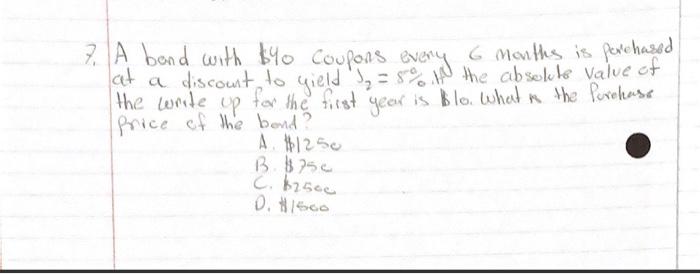 7. A bond with $40 Coupons every 6 months is perchased
at a discount to yield J2 = 8% If the absolute value of
the write up for the first year is $10. What is the Purchase
Price of the bond?
A. $1250
B. $750
C. $2500
D. $1500